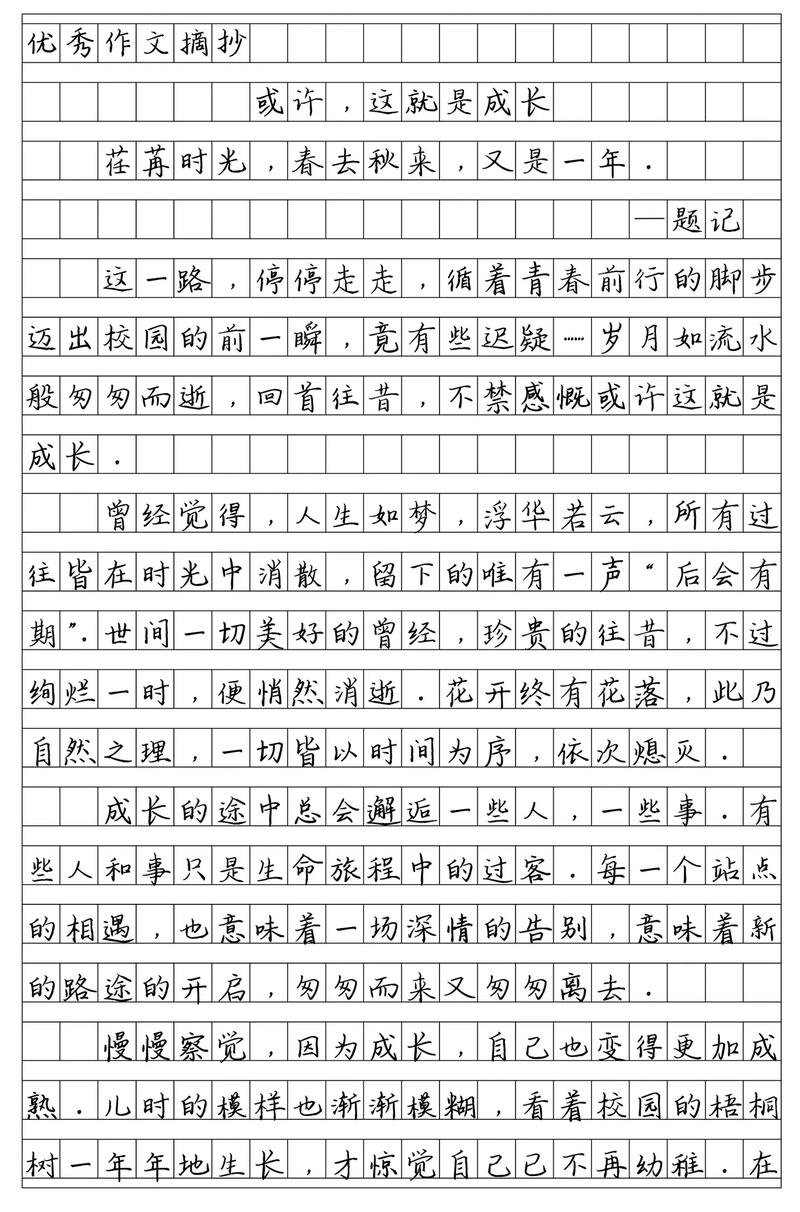 优秀作文摘抄
或许，这就是成长
荏苒时光，春去秋来，又是一年.
—题记
这一路，停停走走，循着青春前行的脚步
迈出校园的前一瞬，竟有些迟疑……岁月如流水
般匆匆而逝，回首往昔，不禁感慨或许这就是
成长.
曾经觉得，人生如梦，浮华若云，所有过
往皆在时光中消散，留下的唯有一声“后会有
期”.世间一切美好的曾经，珍贵的往昔，不过
绚烂一时，便悄然消逝.花开终有花落，此乃
自然之理，一切皆以时间为序，依次熄灭.
成长的途中总会邂逅一些人，一些事.有
些人和事只是生命旅程中的过客.每一个站点
的相遇，也意味着一场深情的告别，意味着新
的路途的开启，匆匆而来又匆匆离去.
慢慢察觉，因为成长，自己也变得更加成
熟.儿时的模样也渐渐模糊，看着校园的梧桐
树一年年地生长，才惊觉自己已不再幼稚.在